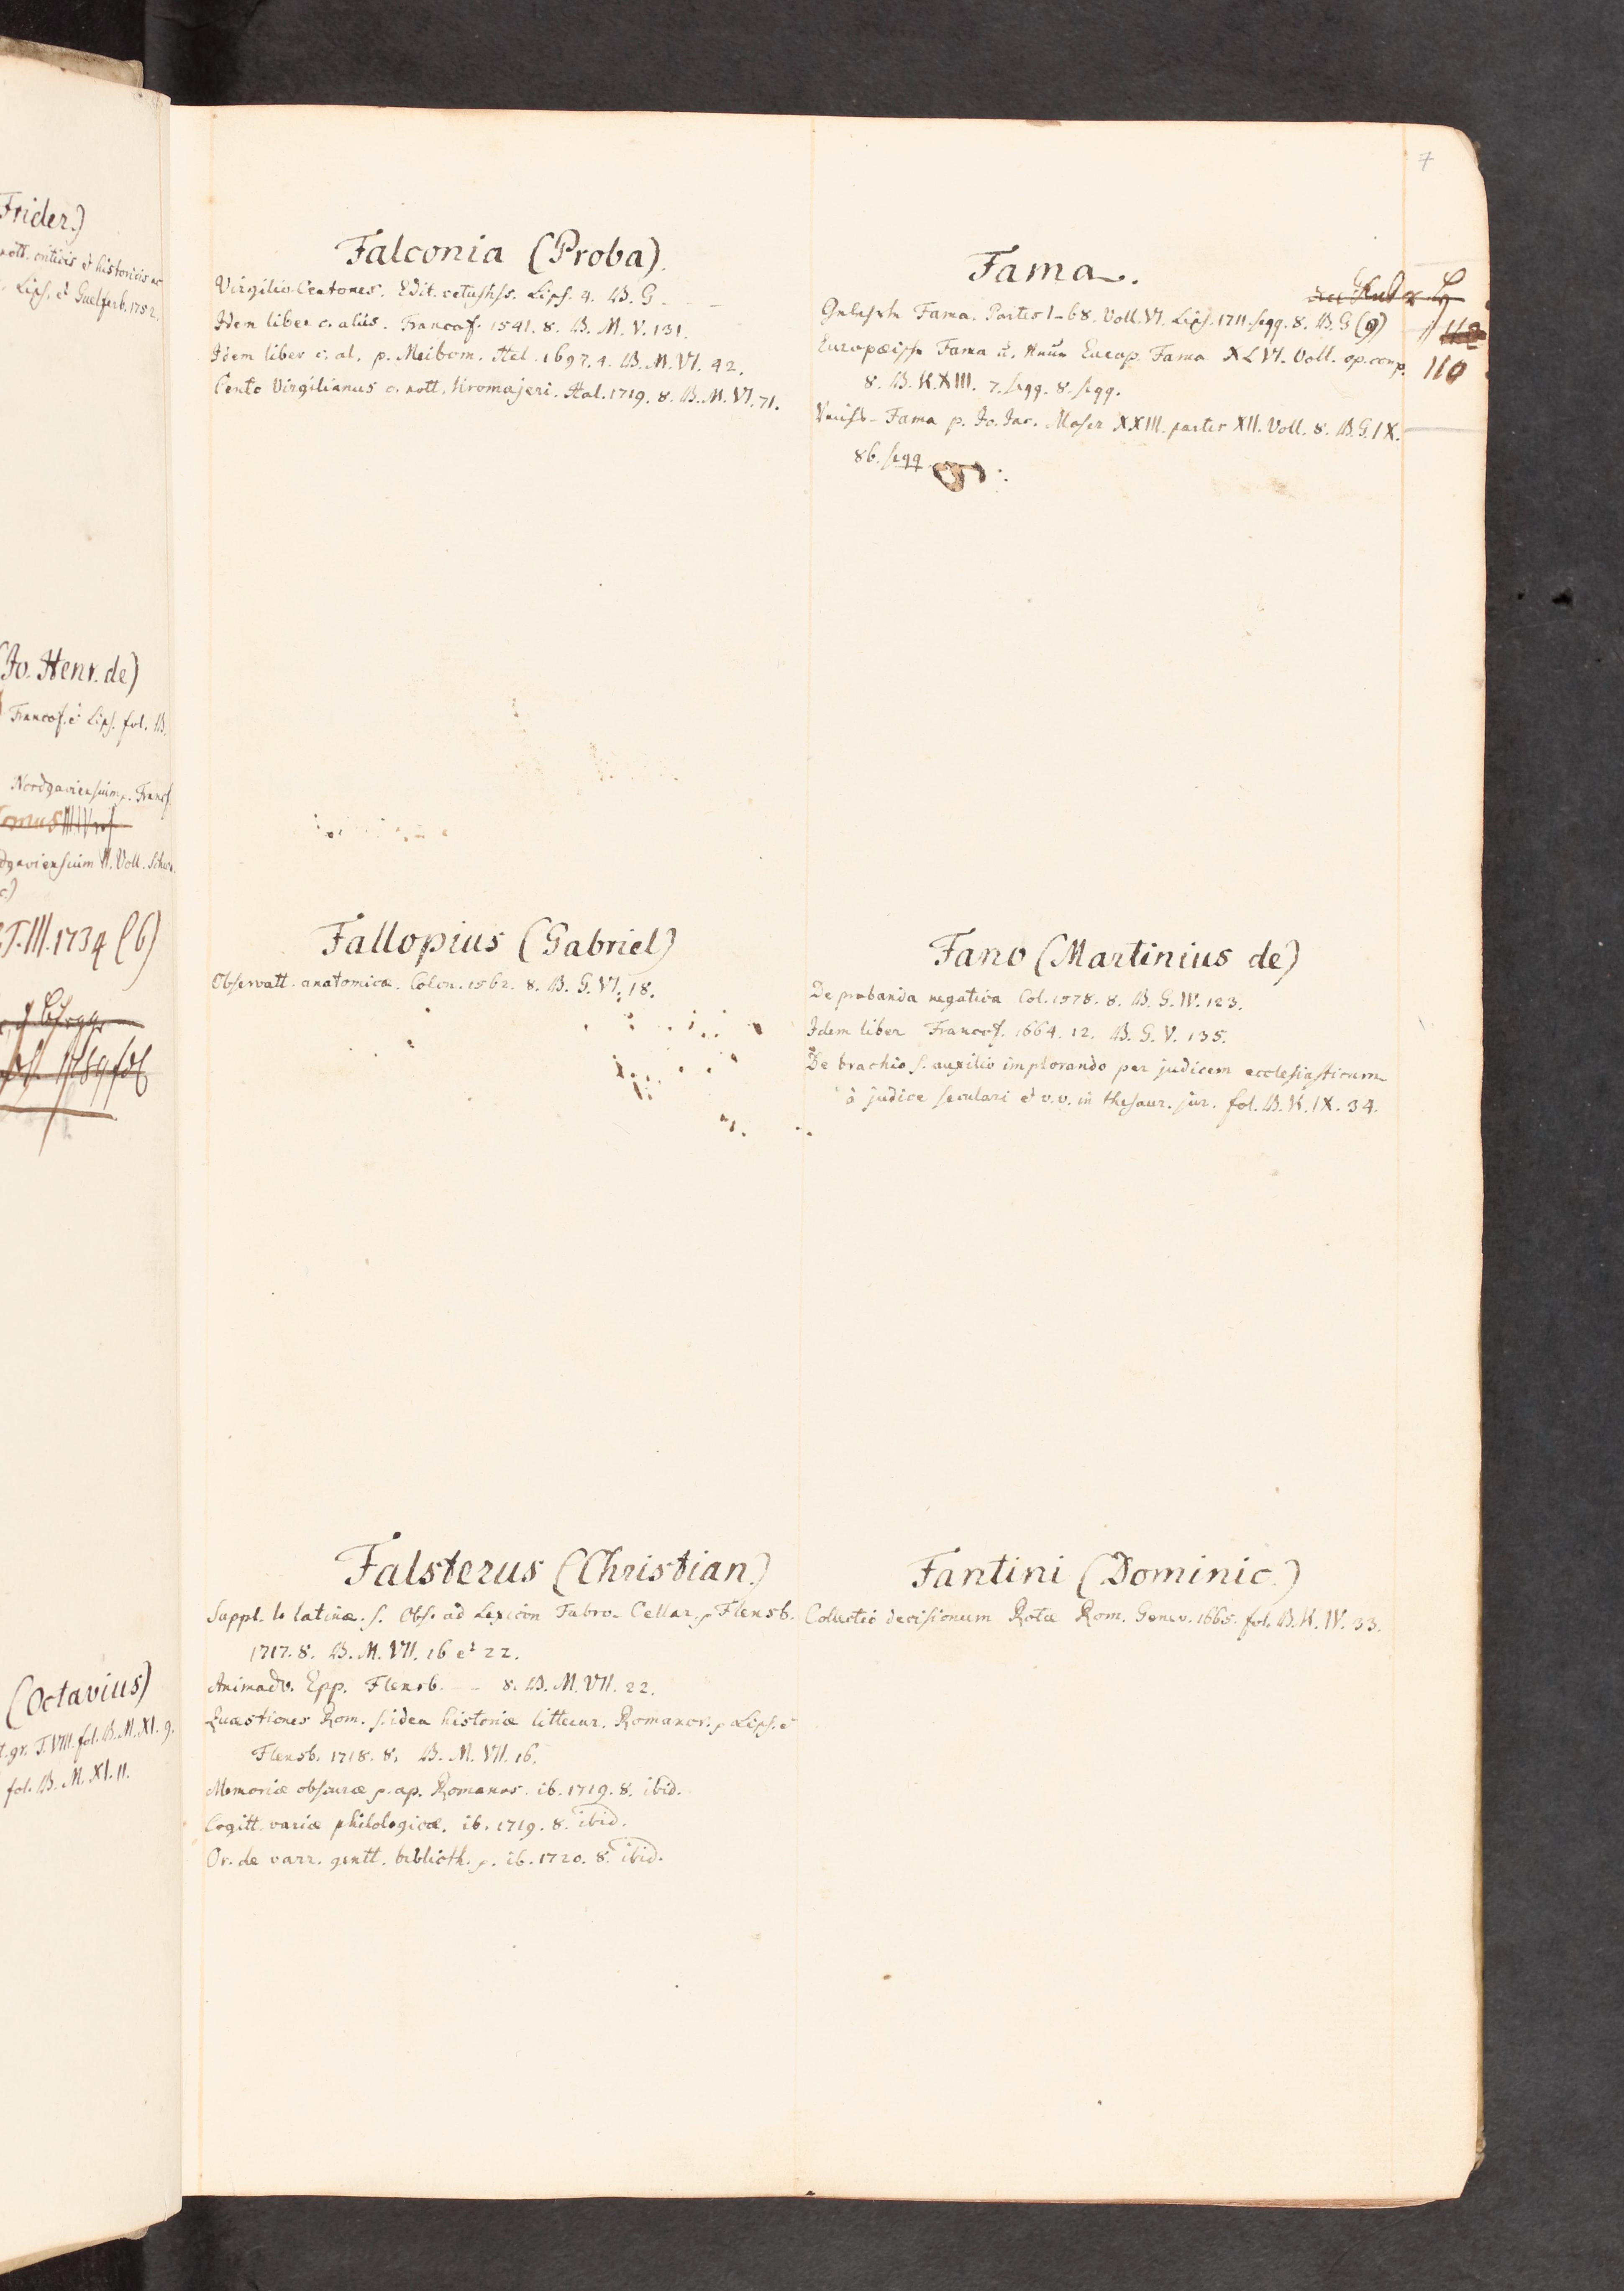 7
Frider.)
nott. criticis et historicis
Lips. et Guelferb. 1752.
(Jo. Henr. de)
Francof. et Lips. fol. B.
Nordgaviensium Francf.
dgaviensium II. Voll.
T. III. 1734 (6)
(Octavius)
t. gr. T. VIII. fol. B. M. XI. 9.
fol. B. M. XI. 11.
Falconia (Proba).
Virgilio Centones. Edit. vetustiss. Lips. 4. B. G - - -
Idem liber c. aliis. Francof. 1541. 8. B. M. V. 131.
Idem liber c. al. p. Meibom. Hel. 1697. 4. B. M. VI. 42.
Cento Virgilianus c. nott. Kromajeri. Hal. 1719. 8. B. M. VI. 71.
Fallopius (Gabriel)
Observatt. anatomicæ. Colon. 1562. 8. B. G. VI. 18.
Falsterus (Christian.)
Suppl. l. latinæ. s. Obs. ad Lexicon Fabro-Cellar. Flensb.
1717. 8. B. M. VII. 16 et 22.
Animadv. Epp. Flensb. - - 8. B. M. VII. 22.
Quæstiones Rom. s. idea historiæ litterar. Romanor. Lips. et
Flensb. 1718. 8. B. M. VII. 16.
Memoriæ obscuræ ap. Romanos. ib. 1719. 8. ibid.
Cogitt. variæ philologicæ. ib. 1719. 8. ibid.
Or. de varr. gentt. biblioth. ib. 1720. 8. ibid.
Fama.
Gelehrte Fama. Partes 1-68. Voll. VI. Lips. 1711. seqq. 8. B. G (9)
110
Europæische Fama u. Neue Europ. Fama XLVI. Voll. op. comp.
8. B. K. XIII. 7. seqq. 8. seqq.
Fama p. Jo. Jac. Moser XXIII. partes XII. Voll. 8. B. G. IX.
86. seqq
Fano (Martinius de)
De probanda negativa Col. 1578. 8. B. G. IV. 123.
Idem liber Francof. 1664. 12. B. G. V. 135.
De brachio s. auxilio implorando per judicem ecclesiasticum
à judice seculari et v. v. in thesaur. jur. fol. B. K. IX. 34.
Fantini (Dominic.)
Collectio decisionum Rotæ Rom. Genev. 1665. fol. B. K. IV. 33.